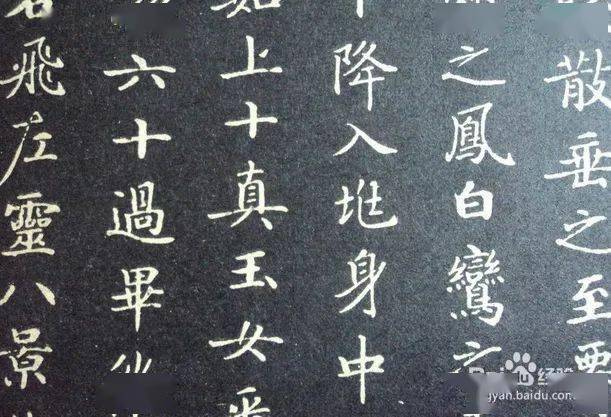 散垂之至
之鳳白鸞之
降入垗身中
如上十真玉女乘
六十過畢
飛左靈八景
Bai 经验
jyan.baidu.com